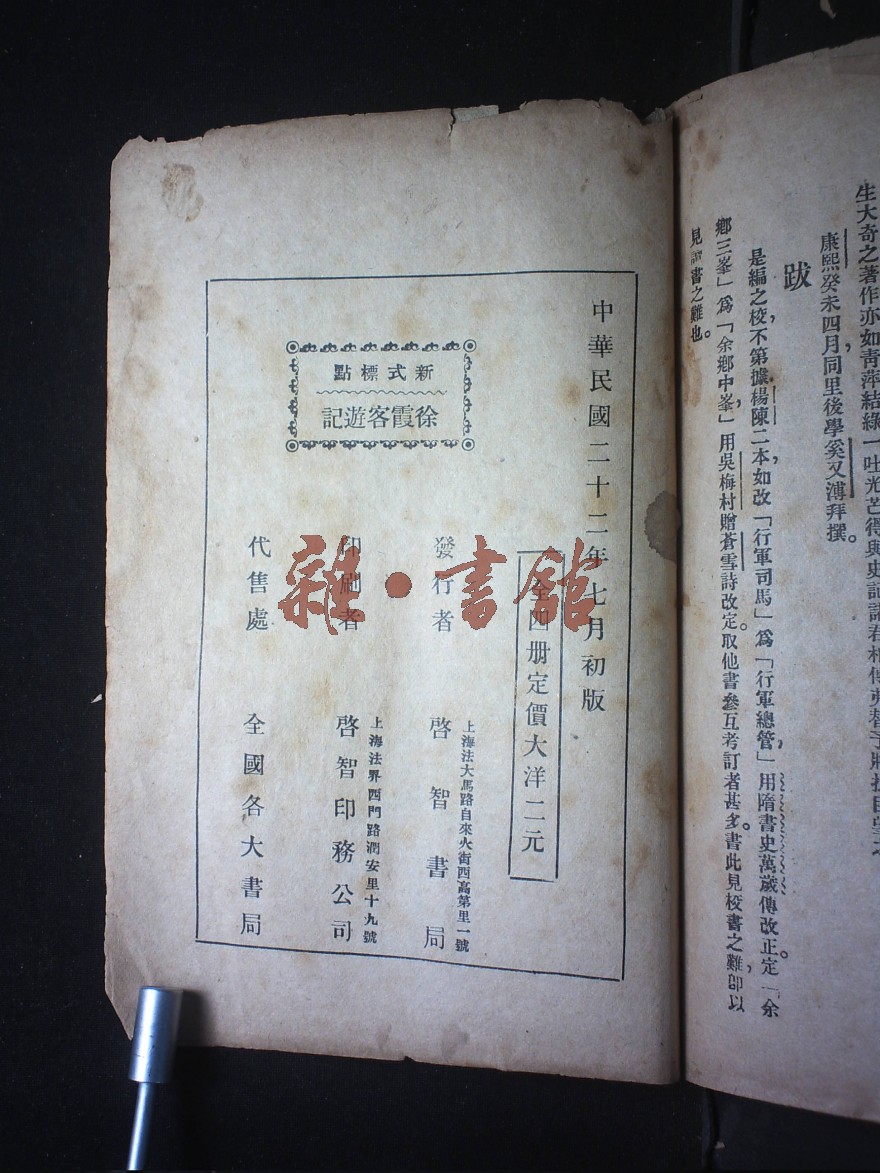 生大奇之著作亦如青萍結綠一吐光芒得與史記諸君相傳
康熙癸未四月同里後學奚又溥拜撰。
跋
是編之校，不第據楊陳二本，如改「行軍司馬」爲「行軍總管」，用隋書史萬歲傳改正。定「余
鄉三峯」爲「余鄉中峯」，用吳梅村贈蒼雪詩改定。取他書參互考訂者甚多。書此見校書之難，卽以
見書之難也。
中華民國二十二年七月初版
全四册定價大洋二元
新式標點
徐霞客遊記
發行者
上海法大馬路自來火街西高第里一號
啓智書局
印刷者
上海法界西門路潤安里十九號
啓智印務公司
代售處
全國各大書局
雜·書館